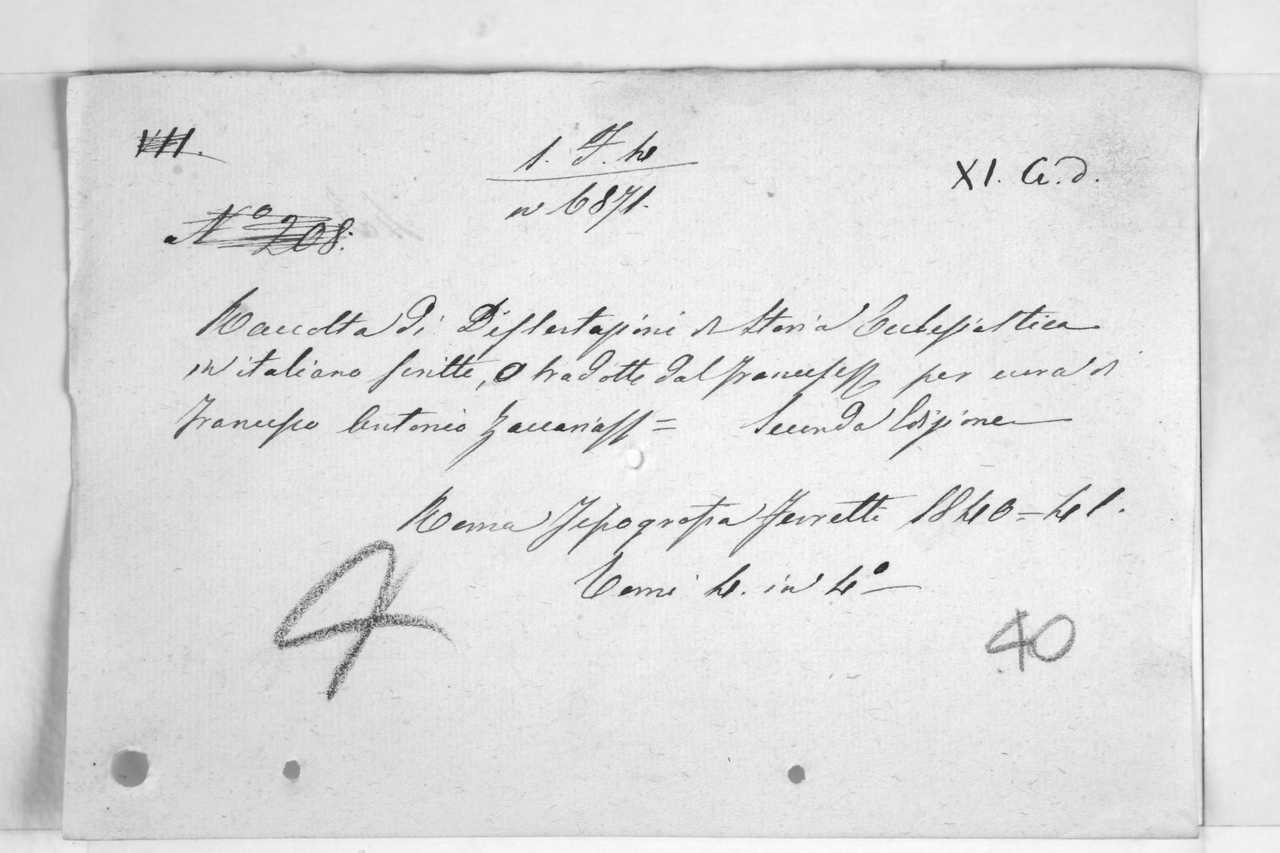 VIII.
1. F. 4
n 6871.
XI. G. d.
N.º 208.
Raccolta di Dissertazioni di Storia Ecclesiastica
in italiano scritte, o tradotte dal francese per cura di
Francesco Antonio Zaccaria = Seconda Edizione
Roma Tipografia Ferretti 1840=41.
Tomi 4. in 4º
4
40